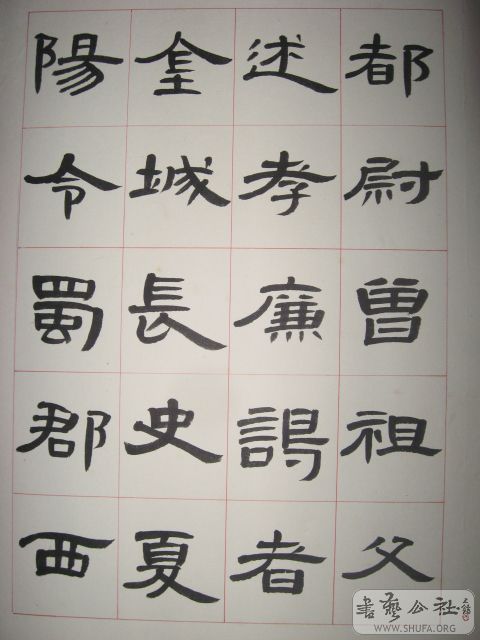 都尉曾祖父
述孝廉謁者
金城長史夏
陽令蜀郡西
書藝公社
WWW.SHUFA.ORG